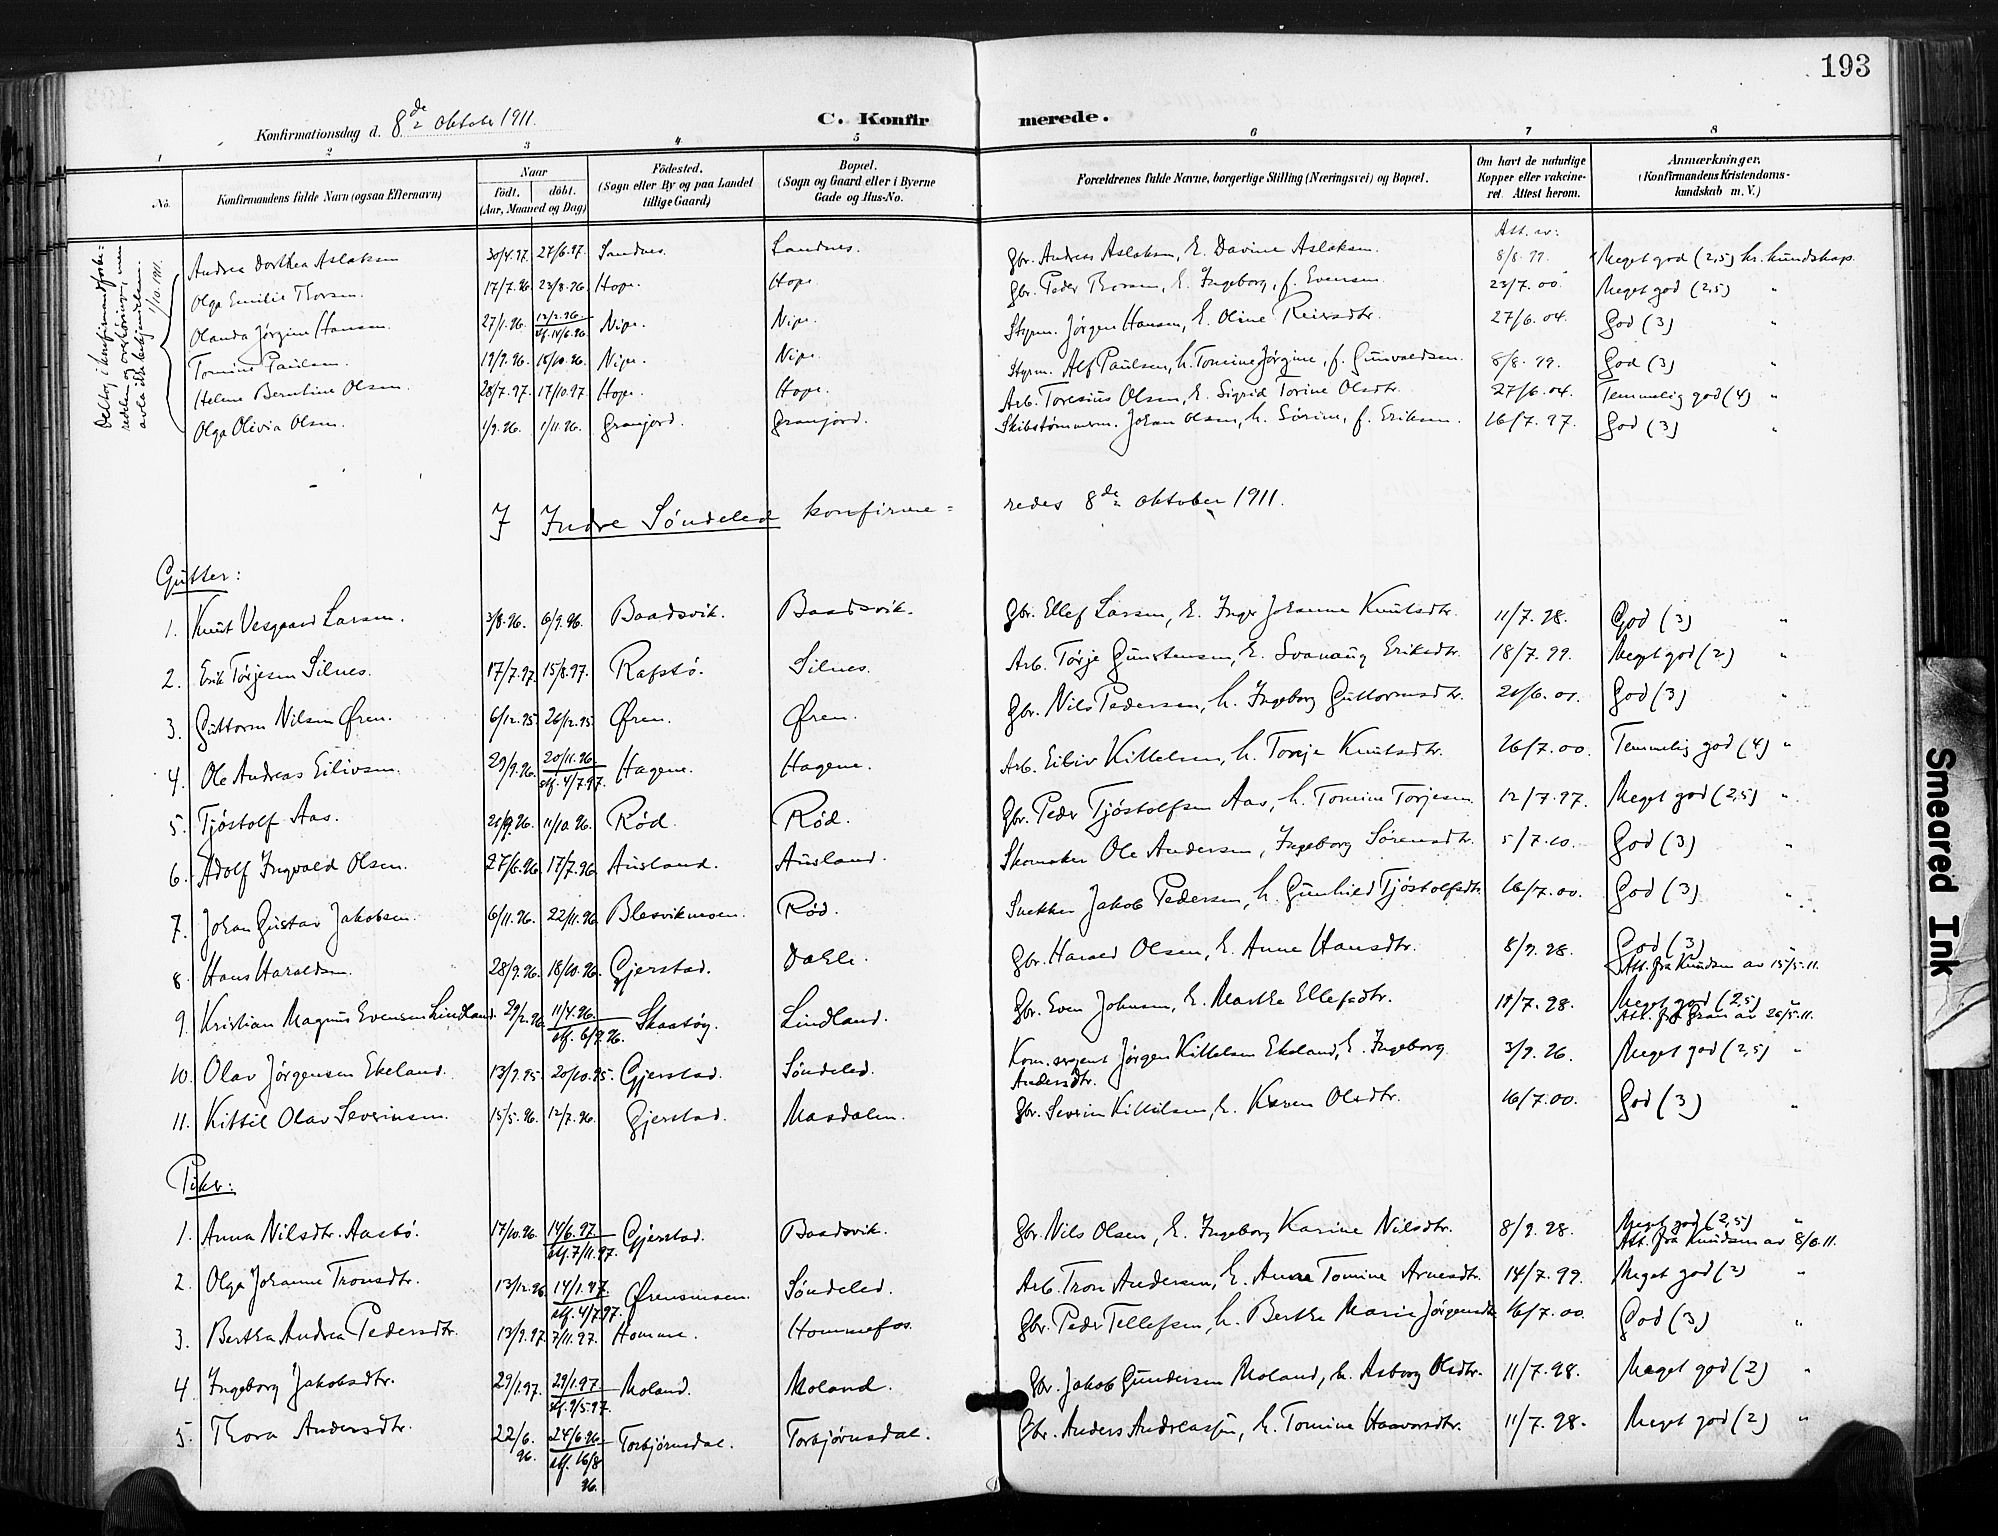 193
Konfirmationsdag d. 8de oktober 1911.
C. Konfirmerede.
1 2 3 4 5 6 7 8
No. Konfirmandens fulde Navn (ogsaa Efternavn) Naar født. døbt. (Aar, Maaned og Dag) Fødested. (Sogn eller By og paa Landet tillige Gaard) Bopæl. (Sogn og Gaard eller i Byerne Gade og Hus-No. Forældrenes fulde Navne, borgerlige Stilling (Næringsvei) og Bopæl. Om havt de naturlige Kopper eller vakcineret. Attest herom. Anmærkninger. (Konfirmandens Kristendomskundskab m. V.)
Att. av:
Andrea Dorthea Aslaksen 30/4.97. 27/6.97. Sandnes. Sandnes. Gbr. Andreas Aslaksen, E. Davine Aslaksen. 8/8.99. Meget god (2,5) kr. kundskap.
Olga Emilie Thorsen. 17/7.96 23/8.96. Hope. Hope. Gbr. Peder Thorsen, E. Ingeborg, f. Evensen 23/7.00. Meget god (2,5) "
Olanda Jørgine Hansen. 27/1.96. 13/2.96. stf. 14/6.96 Nipe. Nipe. Styrm. Jörgen Hansen, E. Oline Reiersdtr. 27/6.04. God (3) "
Tomine Paulsen. 19/9.96. 15/10.96. Nipe. Nipe. Styrm. Alf Paulsen, h. Tomine Jørgine, f. Gunvaldsen. 8/8.99. God (3) "
Helene Berntine Olsen. 28/7.97. 17/10.97. Hope. Hope. Arb. Toresius Olsen, E. Sigrid Torine Olsdtr. 27/6.04. Temmelig god (4) "
Olga Olivia Olsen. 1/9.96. 1/11.96. Granjord. Granjord. Skibstømmerm. Johan Olsen, h. Sørine, f. Eriksen. 16/7.97. God (3) "
I Indre Søndeled konfirmeredes 8de oktober 1911.
Gutter:
1. Knut Vesgaard Larsen. 3/8.96. 6/9.96. Baadsvik. Baadsvik. Gbr. Ellef Larsen, E. Inger Johanne Knutsdtr. 11/7.98. God (3) "
2. Erik Tørjesen Silnes. 17/7.97. 15/8.97. Rafstø. Silnes. Arb. Tørje Gunstensen, E. Svanaug Eriksdtr. 18/7.99. Meget god (2) "
3. Guttorm Nilsen Øren. 6/12.95. 26/12.95. Øren. Øren. Gbr. Nils Pedersen, h. Ingeborg Guttormsdtr. God (3) "
4. Ole Andreas Eilivsen. 29/9.96. 20/11.96. stf. 4/7.97. Hagene. Hagene. Arb. Eiliv Kittelsen, h. Tonje Knutsdtr. 26/7.00. Temmelig god (4) "
5. Tjöstolf Aas. 11/10.96. Röd. Röd. Gbr. Peder Tjöstolfsen Aas, h. Tomine Torjesen 12/7.97. Meget god (2,5) "
6. Adolf Ingvald Olsen. 27/6.96. 17/7.96. Ausland. Ausland. Skomaker Ole Andersen, Ingeborg Sörensdtr. 5/7.10. God (3) "
7. Johan Gustav Jakobsen. 6/11.96. 22/11.96. Blesvikmoen. Röd. Snekker Jakob Pedersen, h. Gunhild Tjöstolfsdtr. 16/7.00. God (3) "
8. Hans Haraldsen. 28/9.96. 18/10.96. Gjerstad. Dahle. Gbr. Harald Olsen, E. Anne Hansdtr. 8/9.98. God (3) " Att. fra Knudsen av 15/5.11.
9. Kristian Magnus Evensen Lindland. 29/2.96. 11/4.96. stf. 6/9.96. Skaatøy. Lindland. Gbr. Even Johnsen, E. Marthe Ellefsdtr. 18/7.98. Meget god (2,5) " Att. fra Gran av 26/5.11.
10. Olav Jørgensen Ekeland. 13/9.95. 20/10.95. Gjerstad. Søndeled. Kom.sergent Jørgen Kittelsen Ekeland, E. Ingeborg Andersdtr. 3/9.96. Meget god (2,5) "
11. Kittil Olav Severinsen. 15/5.96. 12/7.96. Gjerstad. Masdalen. Gbr. Severin Kittilsen, E. Karen Olsdtr. 16/7.00. God (3) "
Piker:
1. Anna Nilsdtr. Aasbø. 17/10.96. 14/6.97. stf. 7/11.97. Gjerstad. Baadsvik. Gbr. Nils Olsen, E. Ingeborg Karine Nilsdtr. 8/9.98. Meget god (2,5) " Att. fra Knudsen av 8/6.11.
2. Olga Johanne Tronsdtr. 13/12.96. 14/1.97. stf. 4/7.97. Ørensmoen. Søndeled. Arb. Tron Andersen, E. Anna Tomine Arnesdtr. 14/7.99. Meget god (2) "
3. Berthe Andrea Pedersdtr. 13/9.97. 7/11.97. Homme. Hommefos Gbr. Peder Tellefsen, h. Berthe Marie Jörgensdtr 16/7.00. God (3) "
4. Ingeborg Jakobsdtr. 29/1.97. 29/1.97 stf. 9/5.97. Moland. Moland. Gbr. Jakob Gundersen Moland, h. Asborg Olsdtr. 11/7.98. Meget god (2) "
5. Thora Andersdtr. 22/6.96. 24/6.96. stf. 16/8 96. Torbjörnsdal. Torbjörnsdal. Gbr. Anders Andreassen, h. Tomine Haavorsdtr. 11/7.98. Meget god (2) "
Smeared Ink